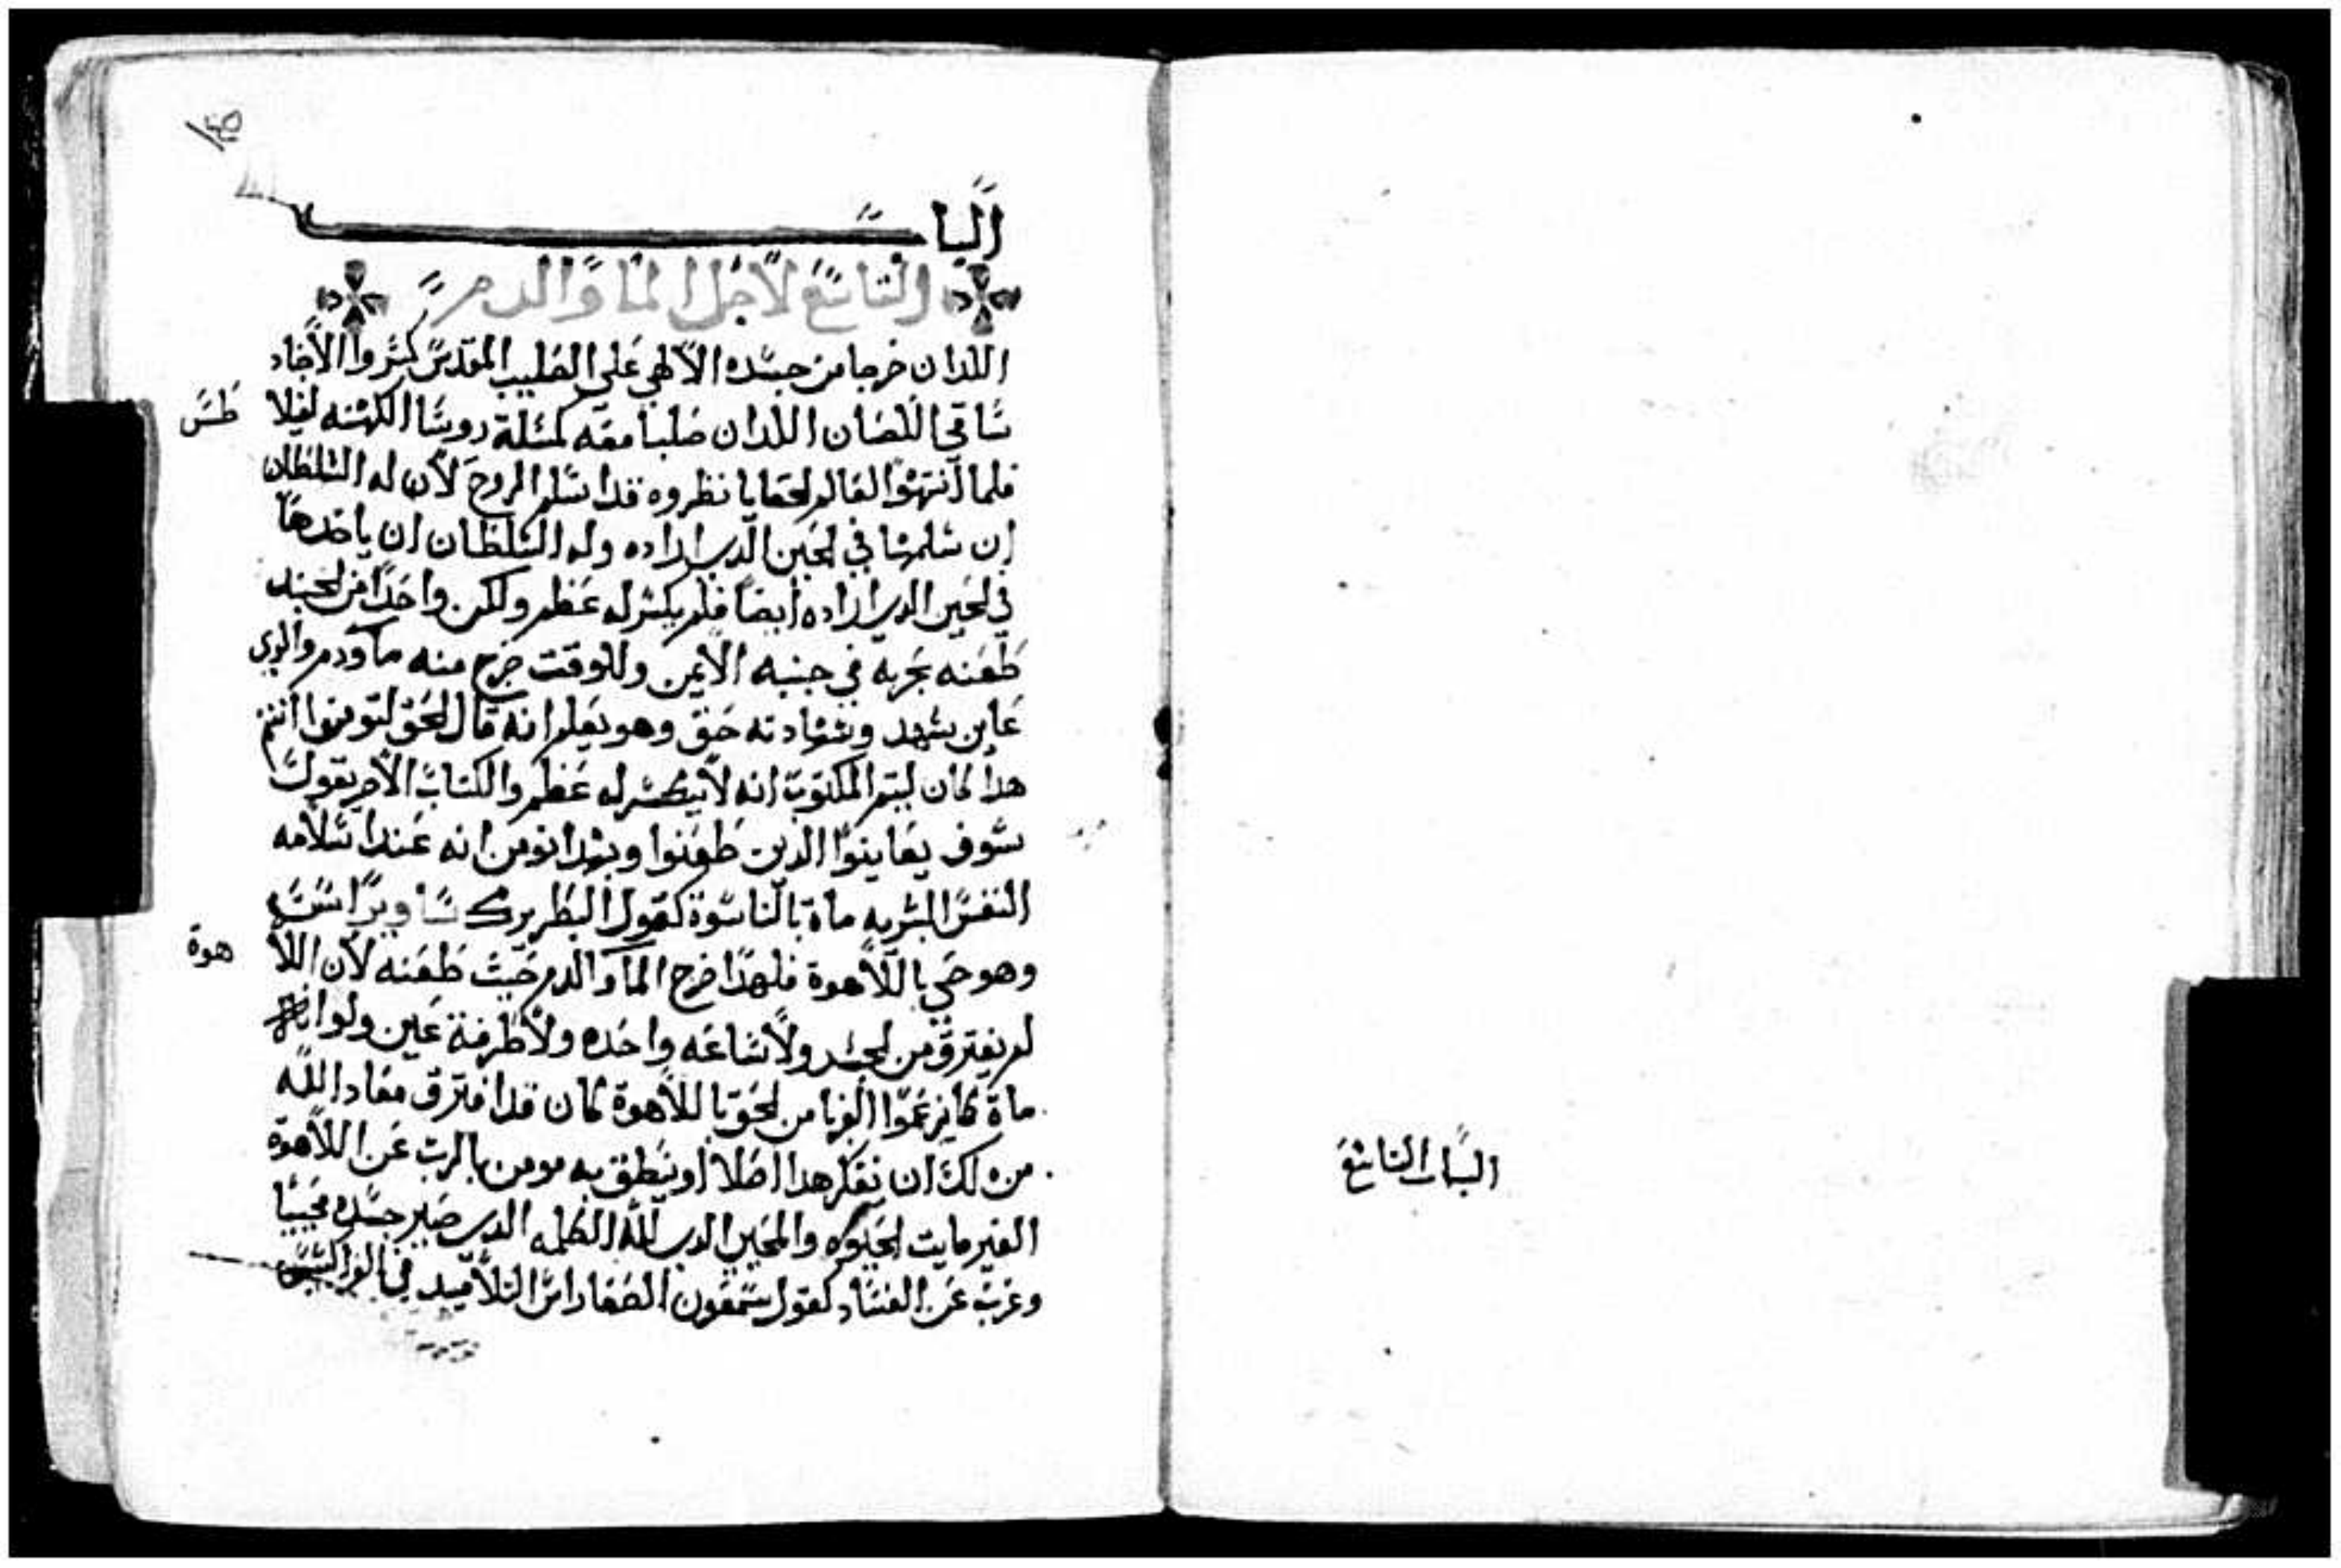 الباب
التاسع لاجل الما والدم
اللدان خرجا من جسده الالهي علي الصليب المقدس كسروا الاجناد
ساقي اللصان اللدان صلبا معه كمسلة روسا الكهنه ليلا
طس
فلما انتهوا نظروه قد اسلم الروح لان له السلطان
ان سلمها في الحين الدي اراده وله السلطان ان ياخدها
في الحين الدي اراده ايضا فلم يكسر له عظم ولكن واحدا من الجند
طعنه بحربه في جنبه الايمن وللوقت خرج منه ما ودم والدي
عاين يشهد وشهادته حق وهو يعلم انه قال الحق لتومنوا انتم
هدا كان ليتم المكتوب انه لا يكسر له عظم والكتاب الاخر يقول
سوف يعاينوا الدين طعنوا وبهدا نومن انه عند اسلامه
النفس البشريه ماة بالناسوة كقول البطريرك ساويرس
وهو حي باللاهوة فلهدا خرج الما والدم حيث طعنه لان اللا
هوة
لم يفترق من الجسد ولا ساعه واحده ولا طرفة عين ولو انه
ماة كما يزعموا الغربا من الحق باللاهوة كان قد افترق معاد الله
من دلك ان نفكر هدا اصلا او ينطق به مومن بالرب عن اللاهوة
الغير مايت الحيوه والمحيي الدي لله الكلمه الدي صير جسده محييا
وغرب عن الفساد كقول سمعون الصفا راس التلاميد في
الباب التاسع